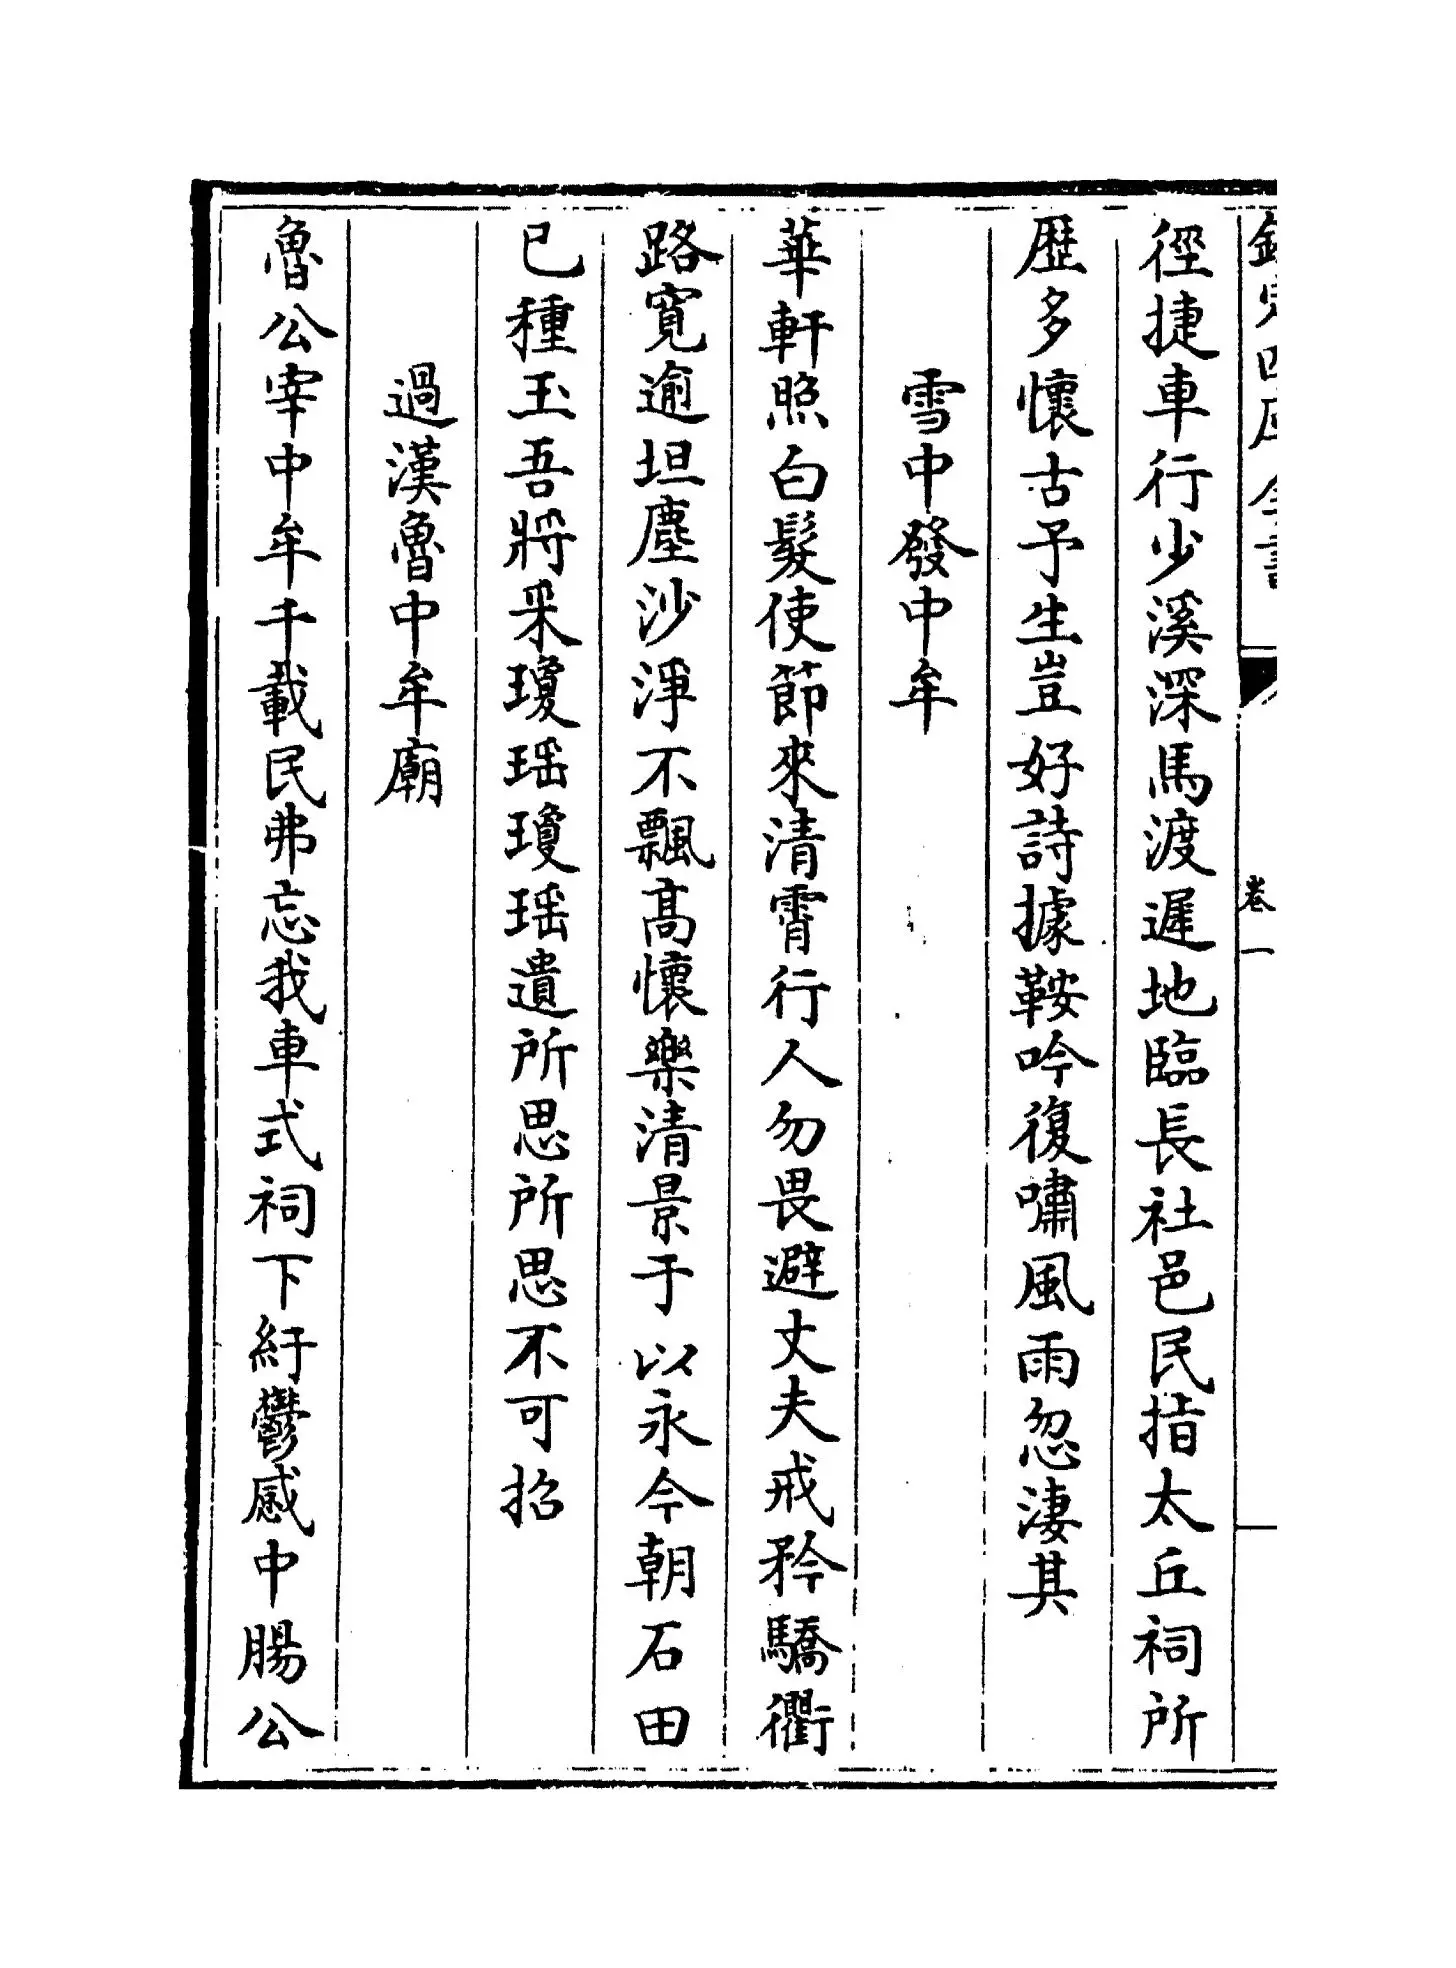 欽定四庫全書
卷一
徑捷車行少溪深馬渡遲地臨長社邑民指太丘祠所
歷多懷古予生豈好詩據鞍吟復嘯風雨忽淒其
雪中發中牟
華軒照白髮使節來清霄行人勿畏避丈夫戒矜驕衢
路寬逾坦塵沙淨不飄高懷樂清景于以永今朝石田
已種玉吾將采瓊瑶瓊瑶遺所思所思不可招
過漢魯中牟廟
魯公宰中牟千載民弗忘我車式祠下紆鬱感中腸公